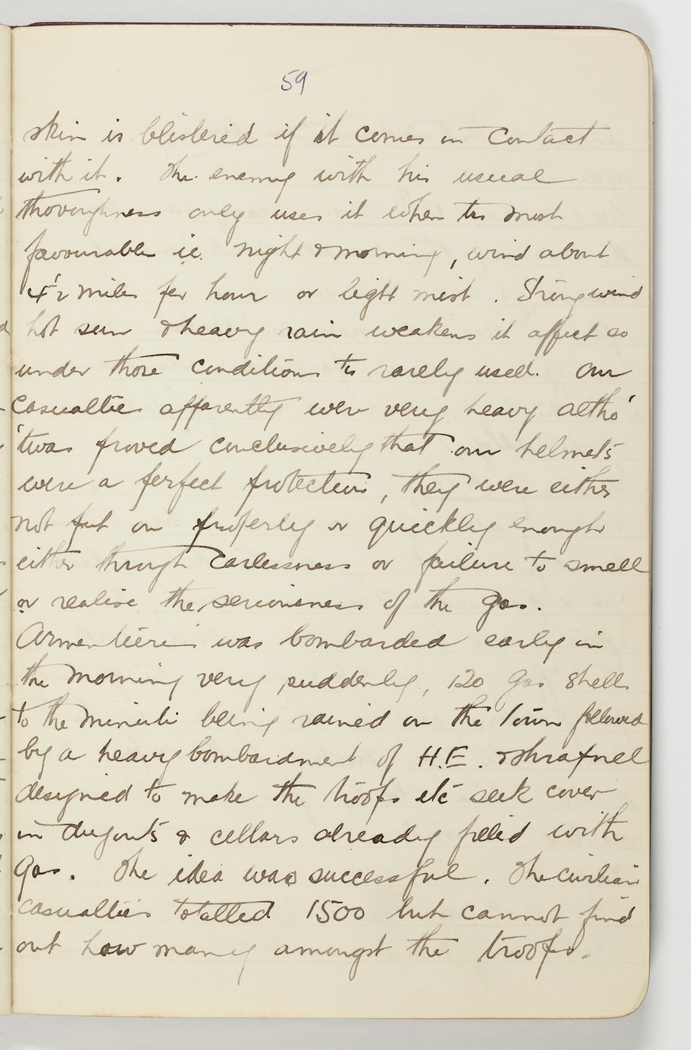 59
skin is blistered if it comes in contact
with it. The enemy with his usual
thoroughness only uses it when tis most
favourable ie. night & morning, wind about
4½ miles per hour or light mist. Strong wind
hot sun & heavy rain weakens it affect so
under those conditions tis rarely used. Our
casualties apparently were very heavy altho'
'twas proved conclusively that our helmets
were a perfect protection, they were either
not put on properly or quickly enough
either through carlessness or failure to smell
or realise the seriousness of the gas.
Armentieres was bombarded early in
the morning very suddenly, 120 gas shells
to the minute being rained on the town followed
by a heavy bombardment of H.E. & shrapnel
designed to make the troops etc seek cover
in dugouts & cellars already filled with
gas. The idea was successful. The civilian
casualties totalled 1500 but cannot find
out how many amongst the troops.